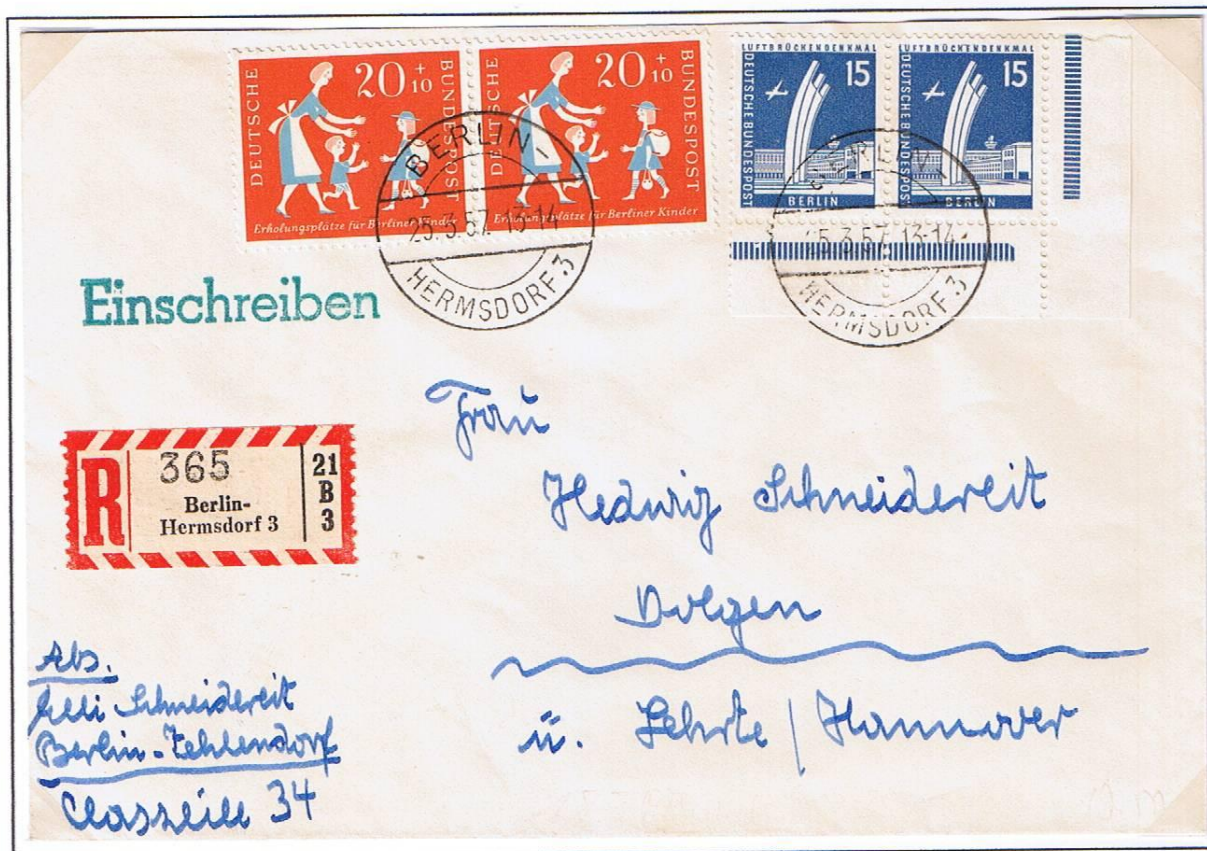 DEUTSCHE
20 + 10
BUNDESPOST
Erholungsplätze für Berliner Kinder
DEUTSCHE
20 + 10
BUNDESPOST
Erholungsplätze für Berliner Kinder
LUFTBRÜCKENDENKMAL
DEUTSCHE BUNDESPOST
15
BERLIN
LUFTBRÜCKENDENKMAL
DEUTSCHE BUNDESPOST
15
BERLIN
BERLIN-
25.3.57.13-14
HERMSDORF 3
BERLIN-
25.3.57.13-14
HERMSDORF 3
Einschreiben
R
365
Berlin-
Hermsdorf 3
21
B
3
Frau
Hedwig Schneidereit
Dolgen
ü. Lehrte / Hannover
Abs.
Schneidereit
Berlin-Zehlendorf
34